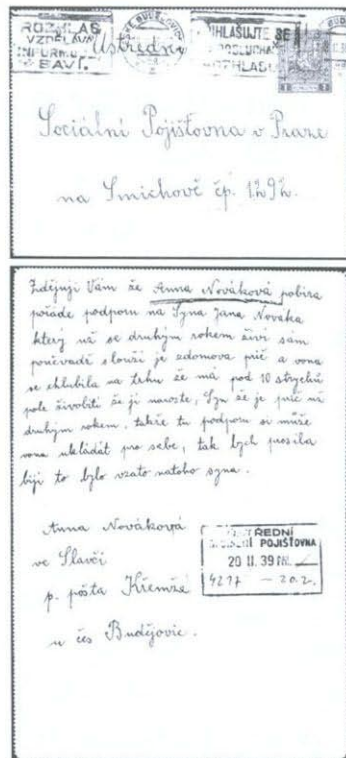 ROZHLAS
VZDĚLÁVÁ
BAVÍ.
PŘIHLAŠUJTE SE
ROZHLASU
Ústřední
Sociální Pojišťovna v Praze
na Smíchově čp. 1292.
Zdějuji Vám že Anna Nováková pobíra
pořáde podporu na Syna Jana Nováka
který už se druhým rokem živí sám
poněvadž slouží je zdomova prič a vona
se chlubila na tehu že má pod 10 strychů
pole živobití že ji naroste, Syn že je prič už
druhým rokem, takře tu podporu si može
vona ukládát pro sebe, tak bych prosila
biji to bylo vzato natoho syna.
Anna Nováková
ve Slavči
p. pošta Křemže
u čes Budějovic.
ÚSTŘEDNÍ
SOCIÁLNÍ POJIŠŤOVNA
20 II. 39
4217 — 20.2.